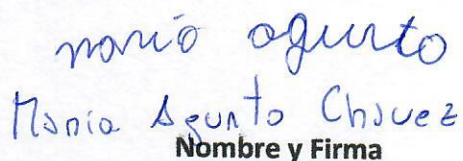 maria agurto
Maria Agurto Chavez
Nombre y Firma